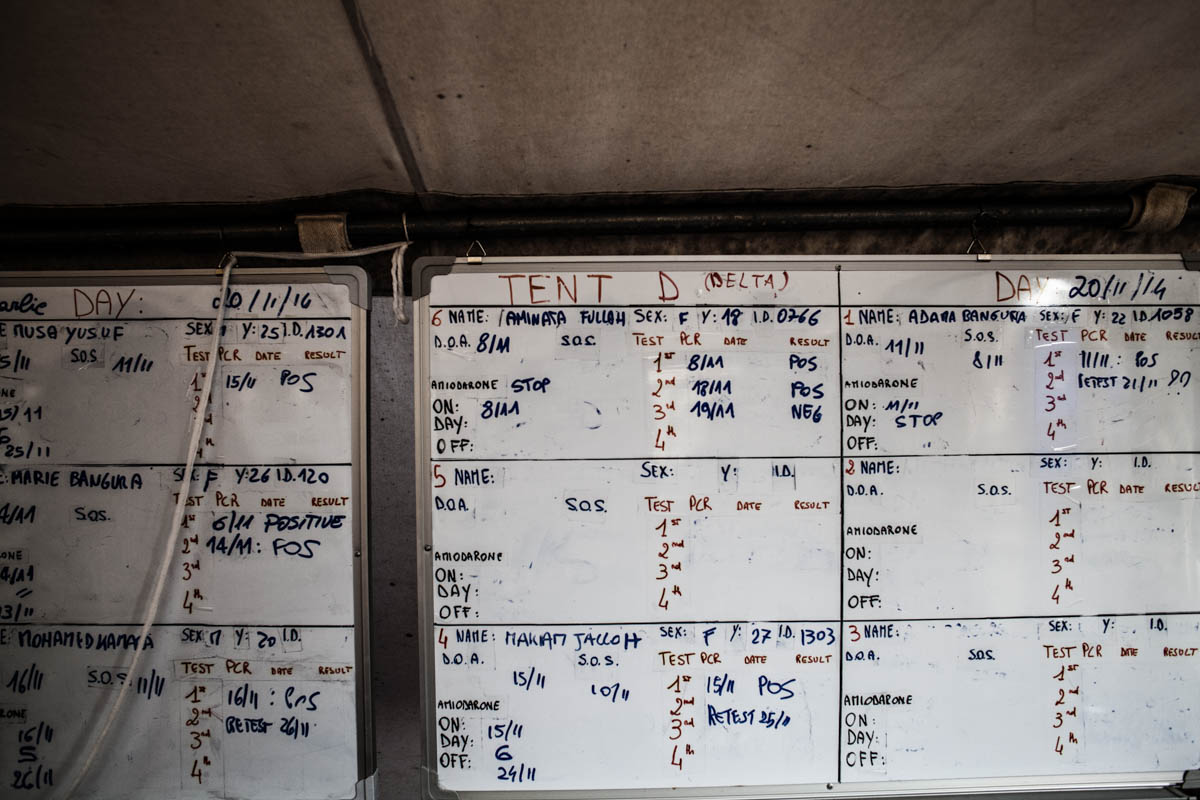 arlie DAY: 20/11/14
E MUSA YUSUF SEX Y: 25 I.D. 1301
5/11 S.O.S. 11/11 TEST PCR DATE RESULT
1st 15/11 POS
25/11
E: MARIE BANGURA SEX F Y: 26 I.D. 120
4/11 S.O.S. TEST PCR DATE RESULT
1st 6/11 POSITIVE
2nd 14/11: POS
ONE
3rd
4/11
4th
E: MOHAMED KAMARA SEX M Y: 20 I.D.
16/11 S.O.S. 11/11 TEST PCR DATE RESULT
1st 16/11: POS
RONE
2nd RETEST 26/11
16/11
3rd
5
4th
26/11
TENT D (DELTA)
6 NAME: AMINATA FULLAH SEX: F Y: 18 I.D. 0266
D.O.A. 8/11 S.O.S. TEST PCR DATE RESULT
1st 8/11 POS
AMIODARONE STOP 2nd 18/11 POS
ON: 8/11 3rd 19/11 NEG
DAY:
4th
OFF:
5 NAME: SEX: Y: I.D.
D.O.A. S.O.S. TEST PCR DATE RESULT
1st
2nd
AMIODARONE
ON: 3rd
DAY:
4th
OFF:
4 NAME: MARIAM JALLOH SEX: F Y: 27 I.D. 1303
D.O.A. 15/11 S.O.S. 10/11 TEST PCR DATE RESULT
1st 15/11 POS
AMIODARONE 2nd RETEST 25/11
ON: 15/11 3rd
DAY: 6
4th
OFF: 24/11
DAY 20/11/14
1 NAME: ADAMA BANGURA SEX: F Y: 22 I.D. 1058
D.O.A. 11/11 S.O.S. 8/11 TEST PCR DATE RESULT
1st 11/11: POS
AMIODARONE 2nd RETEST 21/11
ON: 11/11 3rd
DAY: STOP
4th
OFF:
2 NAME: SEX: Y: I.D.
D.O.A. S.O.S. TEST PCR DATE RESULT
1st
AMIODARONE 2nd
ON: 3rd
DAY:
4th
OFF:
3 NAME: SEX: Y: I.D.
D.O.A. S.O.S. TEST PCR DATE RESULT
1st
AMIODARONE 2nd
ON: 3rd
DAY:
4th
OFF: